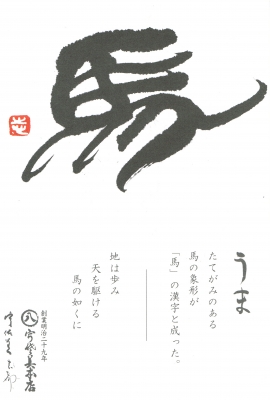 馬
うま
たてがみのある
馬の象形が
「馬」の漢字と成った。
地は歩み
天を駆ける
馬の如くに
創業明治二十九年
八